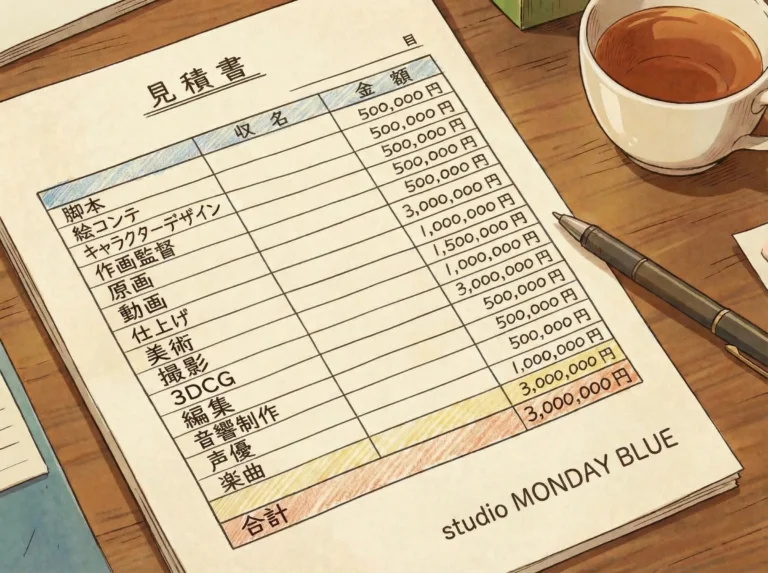 見積書
目
収名 金額
脚本 500,000円
絵コンテ 500,000円
キャラクターデザイン 500,000円
作画監督 500,000円
原画 500,000円
動画 3,000,000円
仕上げ 1,000,000円
美術 1,500,000円
撮影 1,000,000円
3DCG 3,000,000円
編集 500,000円
音響制作 500,000円
声優 500,000円
楽曲 1,000,000円
3,000,000円
合計 3,000,000円
studio MONDAY BLUE